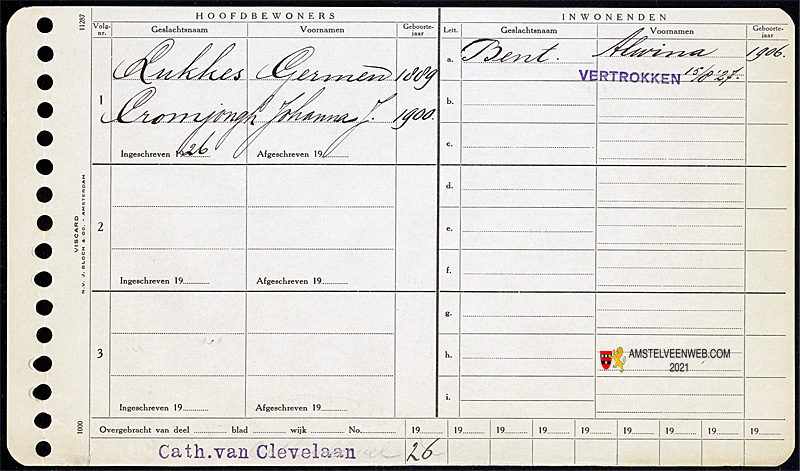 11287
HOOFDBEWONERS
INWONENDEN
Volg-nr. Geslachtsnaam Voornamen Geboorte-jaar Lett. Geslachtsnaam Voornamen Geboorte-jaar
1 Lukkes Germen 1889
Cromjongh Johanna J. 1900.
Ingeschreven 1926 Afgeschreven 19
a. Bent. Alwina 1906.
VERTROKKEN 15/8 '27.
b.
c.
2
Ingeschreven 19 Afgeschreven 19
d.
e.
f.
3
Ingeschreven 19 Afgeschreven 19
g.
h.
i.
AMSTELVEENWEB.COM
2021
VISCARD
N.V. J. BLOCH & DC. - AMSTERDAM
1000
Overgebracht van deel blad wijk No. 19 19 19 19 19 19 19 19 19 19
Cath.van Clevelaan 26